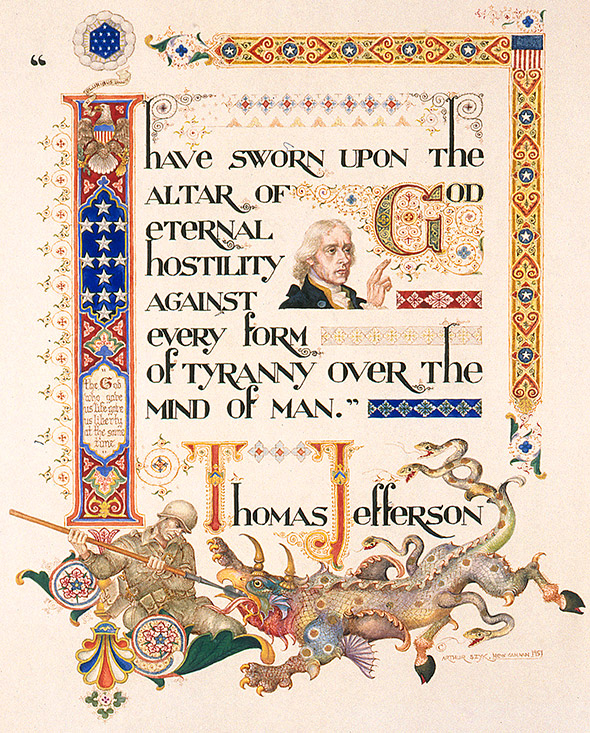 “I have sworn upon the
altar of God
eternal
hostility
against
every form
of tyranny over the
mind of man.”
the God
who gave
us life gave
us liberty
at the same
time.
Thomas Jefferson
ARTHUR SZYK, NEW CANAAN 1951